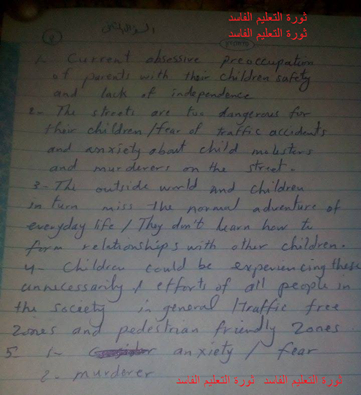 ثورة التعليم الفاسد
ثورة التعليم الفاسد
1- Current obsessive preoccupation
of parents with their children safety
and lack of independence
2- The streets are too dangerous for
their children / fear of traffic accidents
and anxiety about child molesters
and murderers on the street.
3- The outside world and children
in turn miss the normal adventure of
everyday life / They don't learn how to
form relationships with other children.
4- Children could be experiencing these
unnecessarily / efforts of all people in
the society in general / traffic free
zones and pedestrian friendly zones
5- 1- anxiety / fear
2- murderer
ثورة التعليم الفاسد ثورة التعليم الفاسد